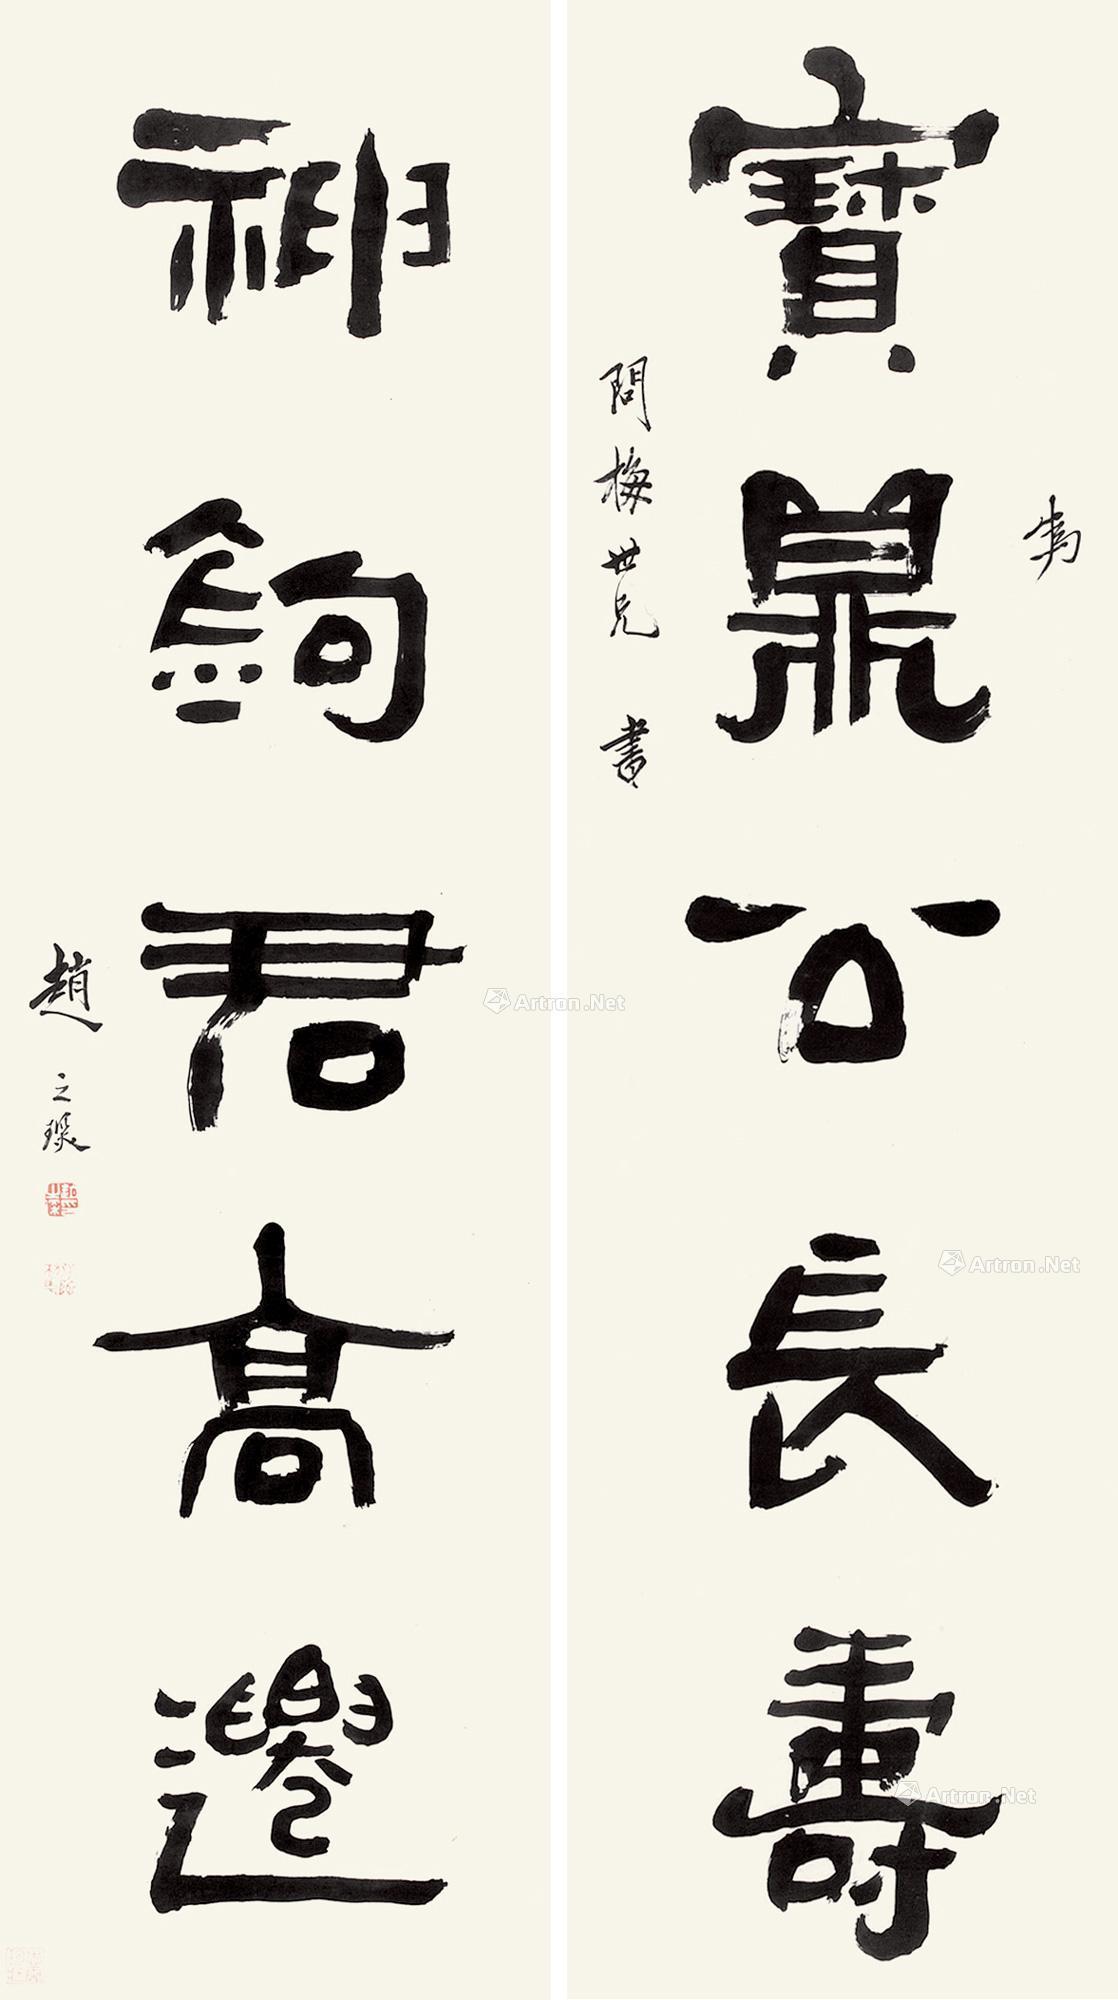 寶鼎公長壽
為
問梅世兄 書
神鉤君高遷
趙之琛
Artron.Net
Artron.Net
Artron.Net